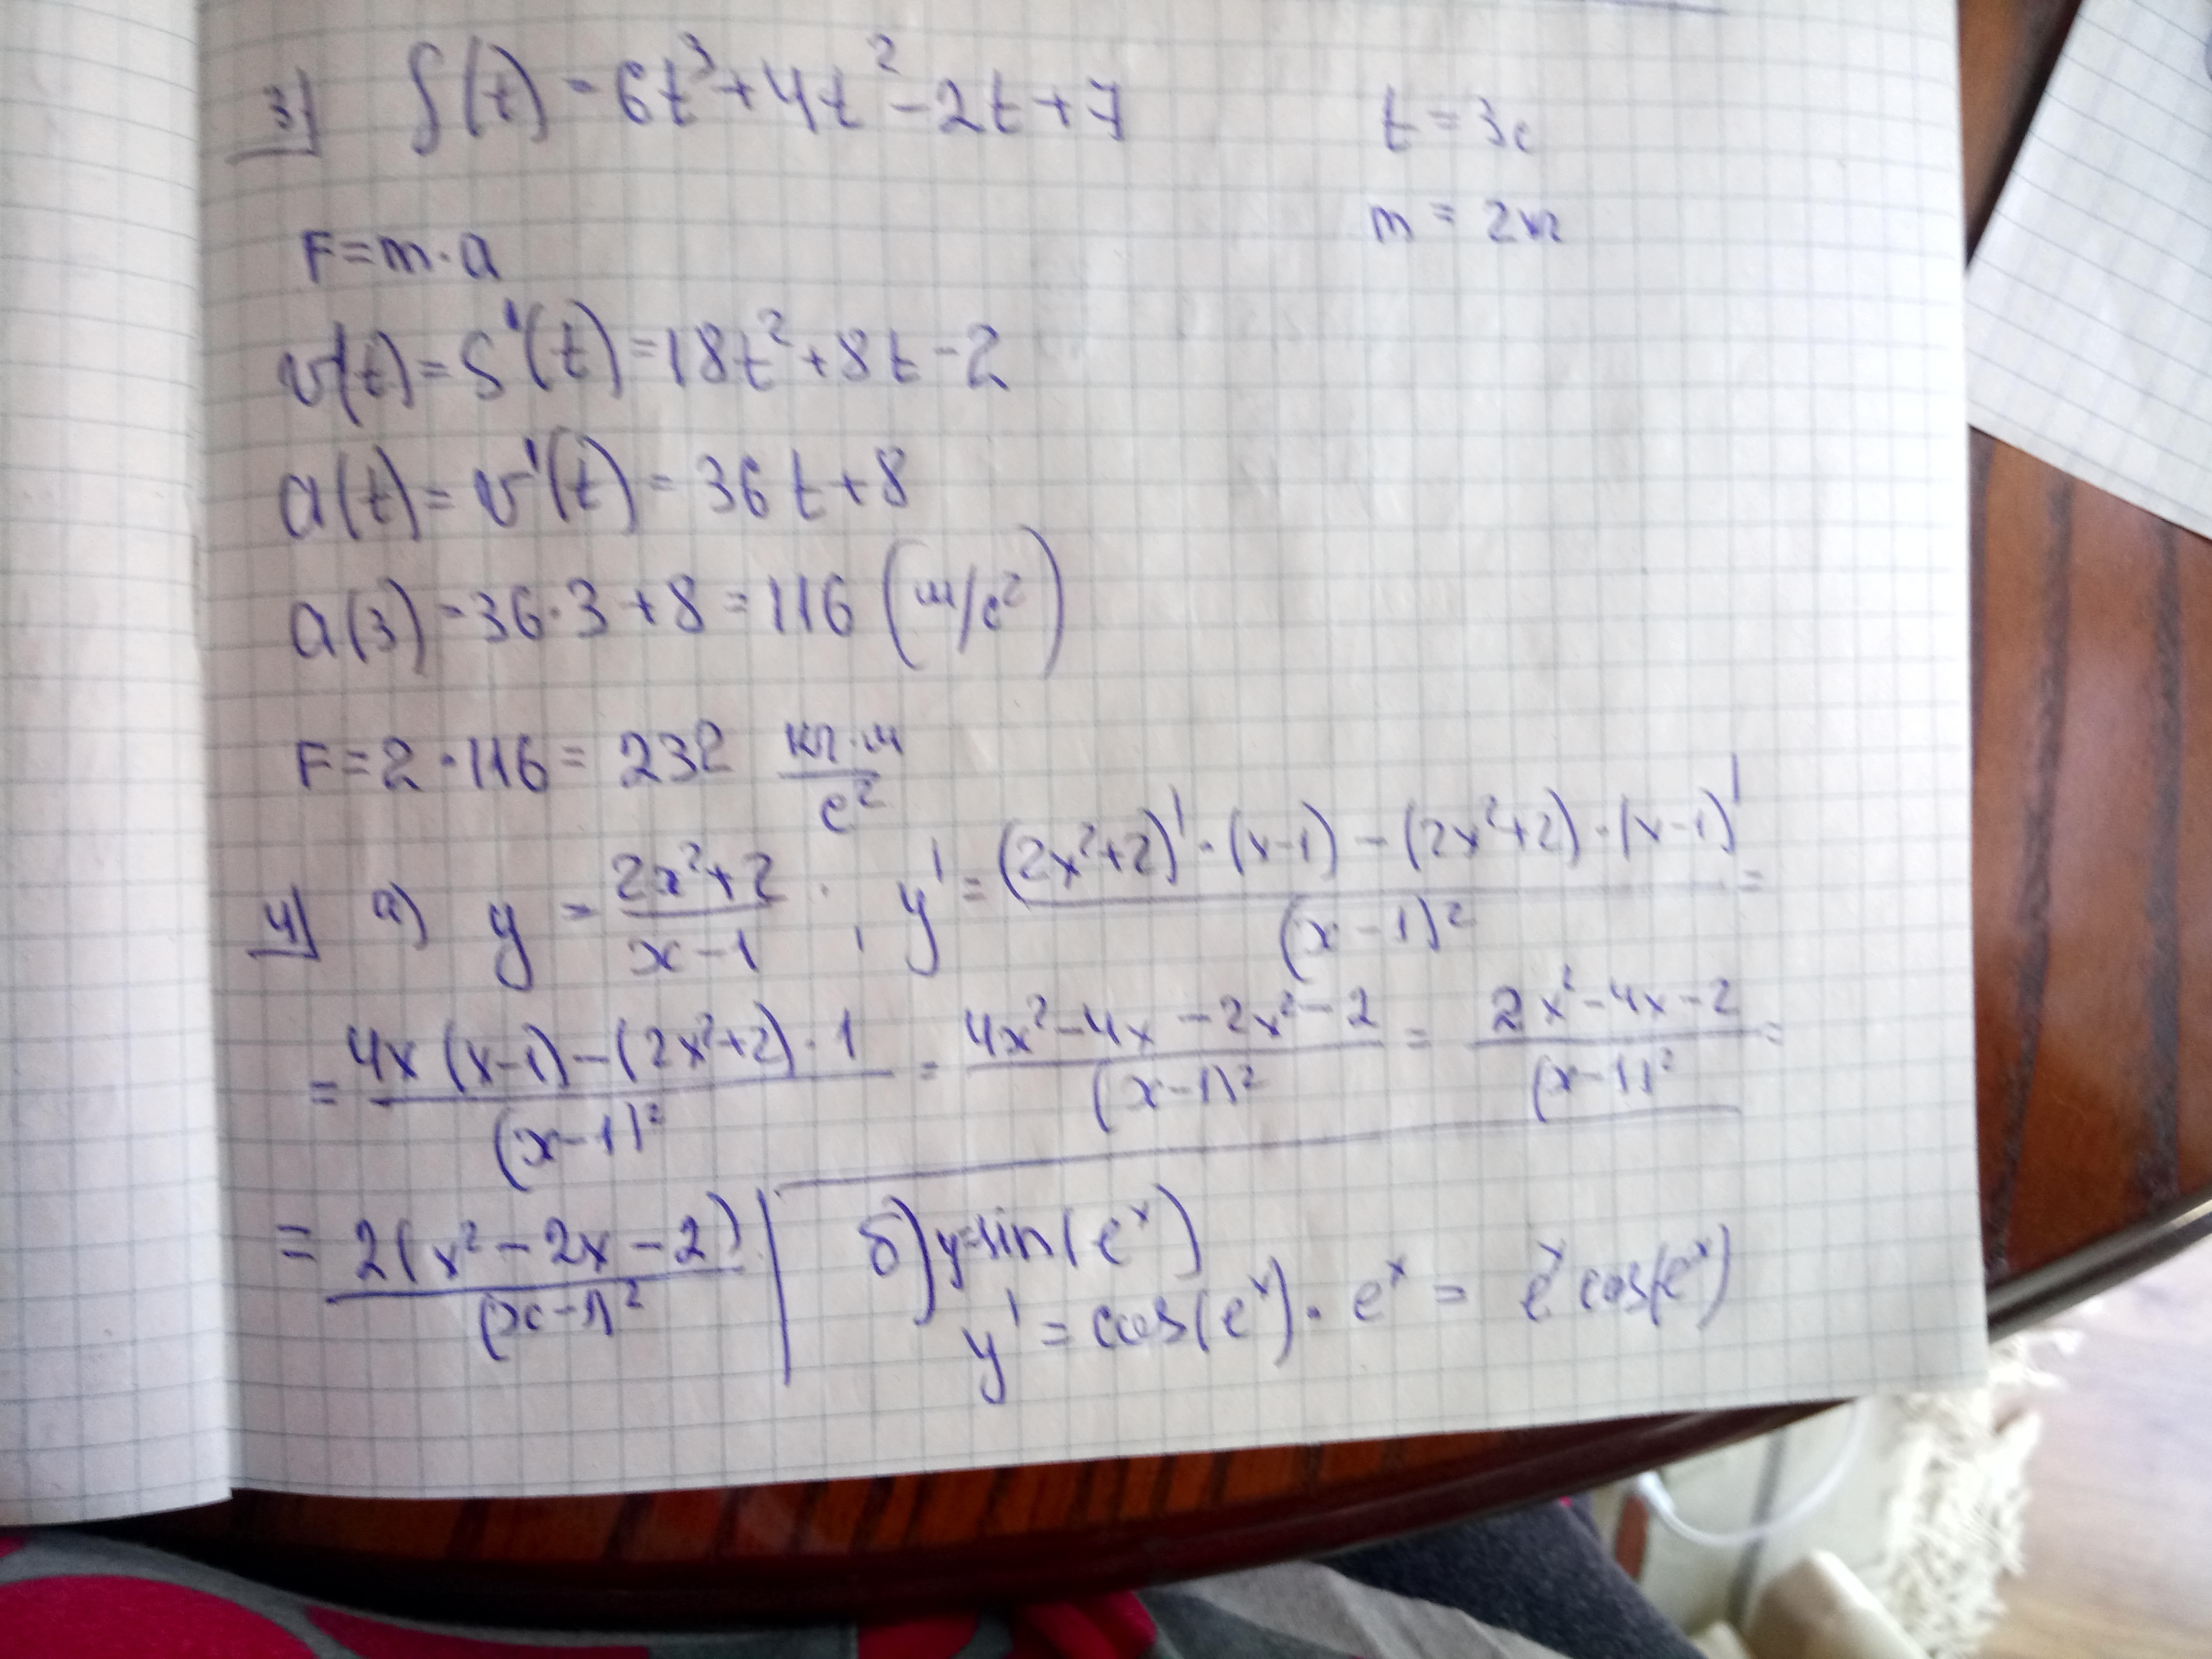 3) S(t) = 6t³ + 4t² - 2t + 7
t = 3с
m = 2кг
F = m · a
v(t) = S'(t) = 18t² + 8t - 2
a(t) = v'(t) = 36t + 8
a(3) = 36·3 + 8 = 116 (м/с²)
F = 2 · 116 = 232 кг·м/с²
4) а) y = (2x²+2)/(x-1) ; y' = ((2x²+2)' · (x-1) - (2x²+2) · (x-1)')/(x-1)² =
= (4x(x-1) - (2x²+2) · 1)/(x-1)² = (4x² - 4x - 2x² - 2)/(x-1)² = (2x² - 4x - 2)/(x-1)² =
= 2(x² - 2x - 2)/(x-1)²
б) y = sin(eˣ)
y' = cos(eˣ) · eˣ = eˣ cos(eˣ)